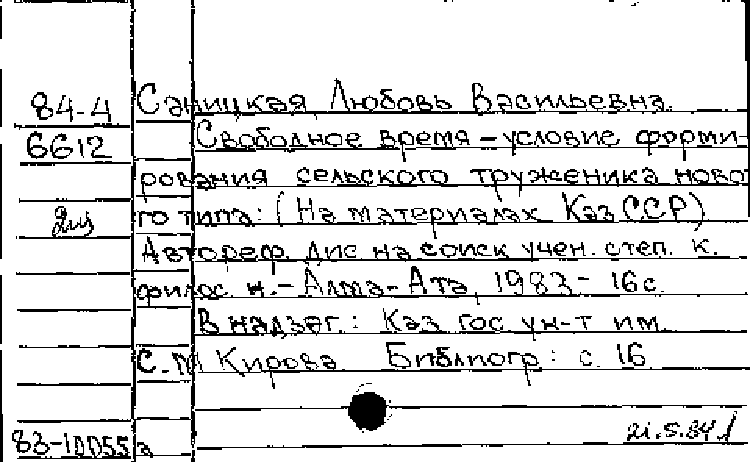 84-4 Саницкая Любовь Васильевна.
6612 Свободное время – условие форми-
рования сельского труженика ново
го типа: (На материалах Каз ССР)
Автореф. дис на соиск учен. степ. к.
филос. н. – Алма-Ата, 1983 – 16 с.
В надзаг.: Каз гос ун-т им.
С. М Кирова Библиогр: с. 16
21.5.84
83-10055 а